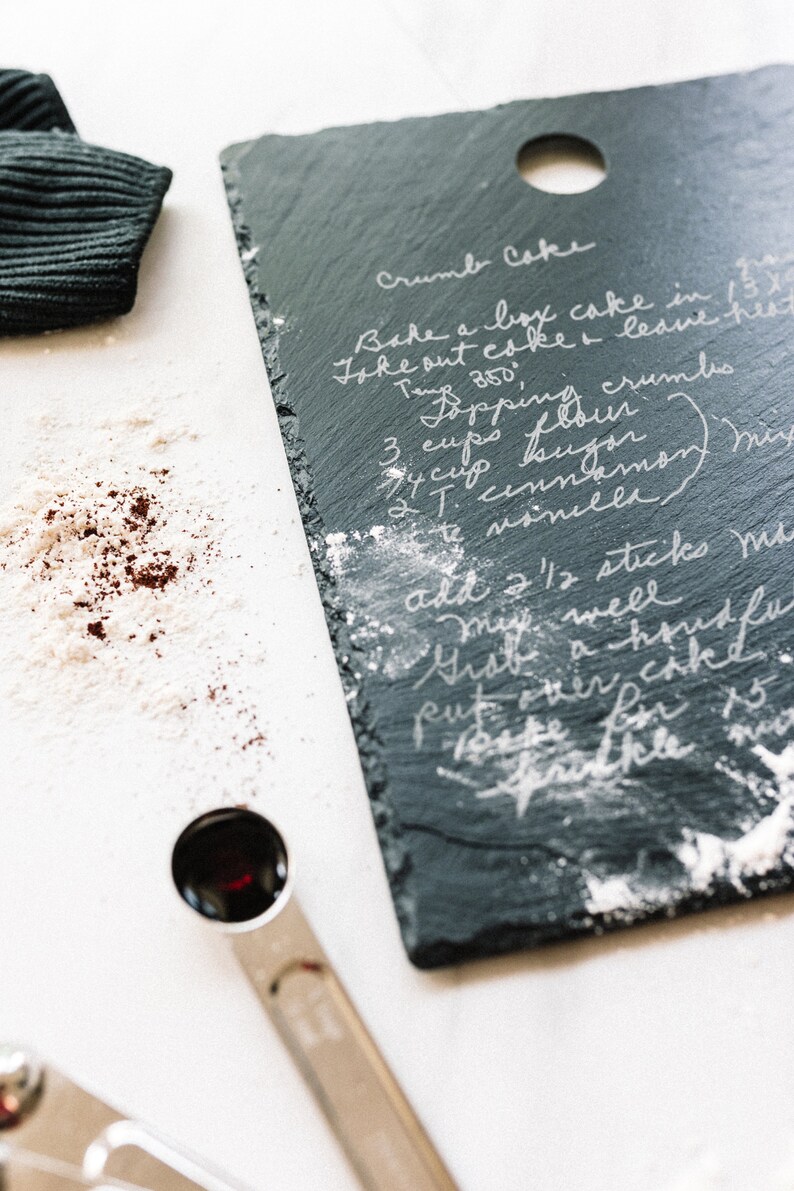 Crumb Cake
Bake a box cake in 13 x
Take out cake & leave heat
Temp 350°
Topping crumbs
3 cups flour
1/4 cup sugar
2 T. cinnamon) mix
t vanilla
add 2 1/2 sticks
Mix well
Grab a handful
put over cake
Bake for 15
Sprinkle